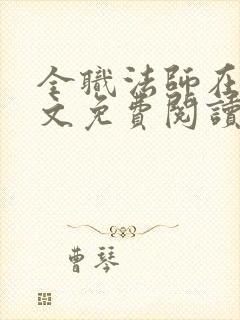 全職法師在
文免費閱讀
曹琴